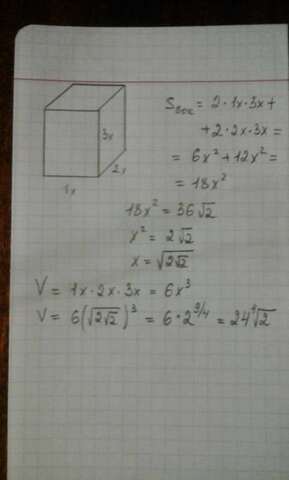 3x
2x
1x
Sбок = 2·1x·3x+
+2·2x·3x=
= 6x²+12x²=
= 18x²
18x² = 36√2
x² = 2√2
x = √(2√2)
V = 1x·2x·3x = 6x³
V = 6(√(2√2))³ = 6·2^(9/4) = 24⁴√2